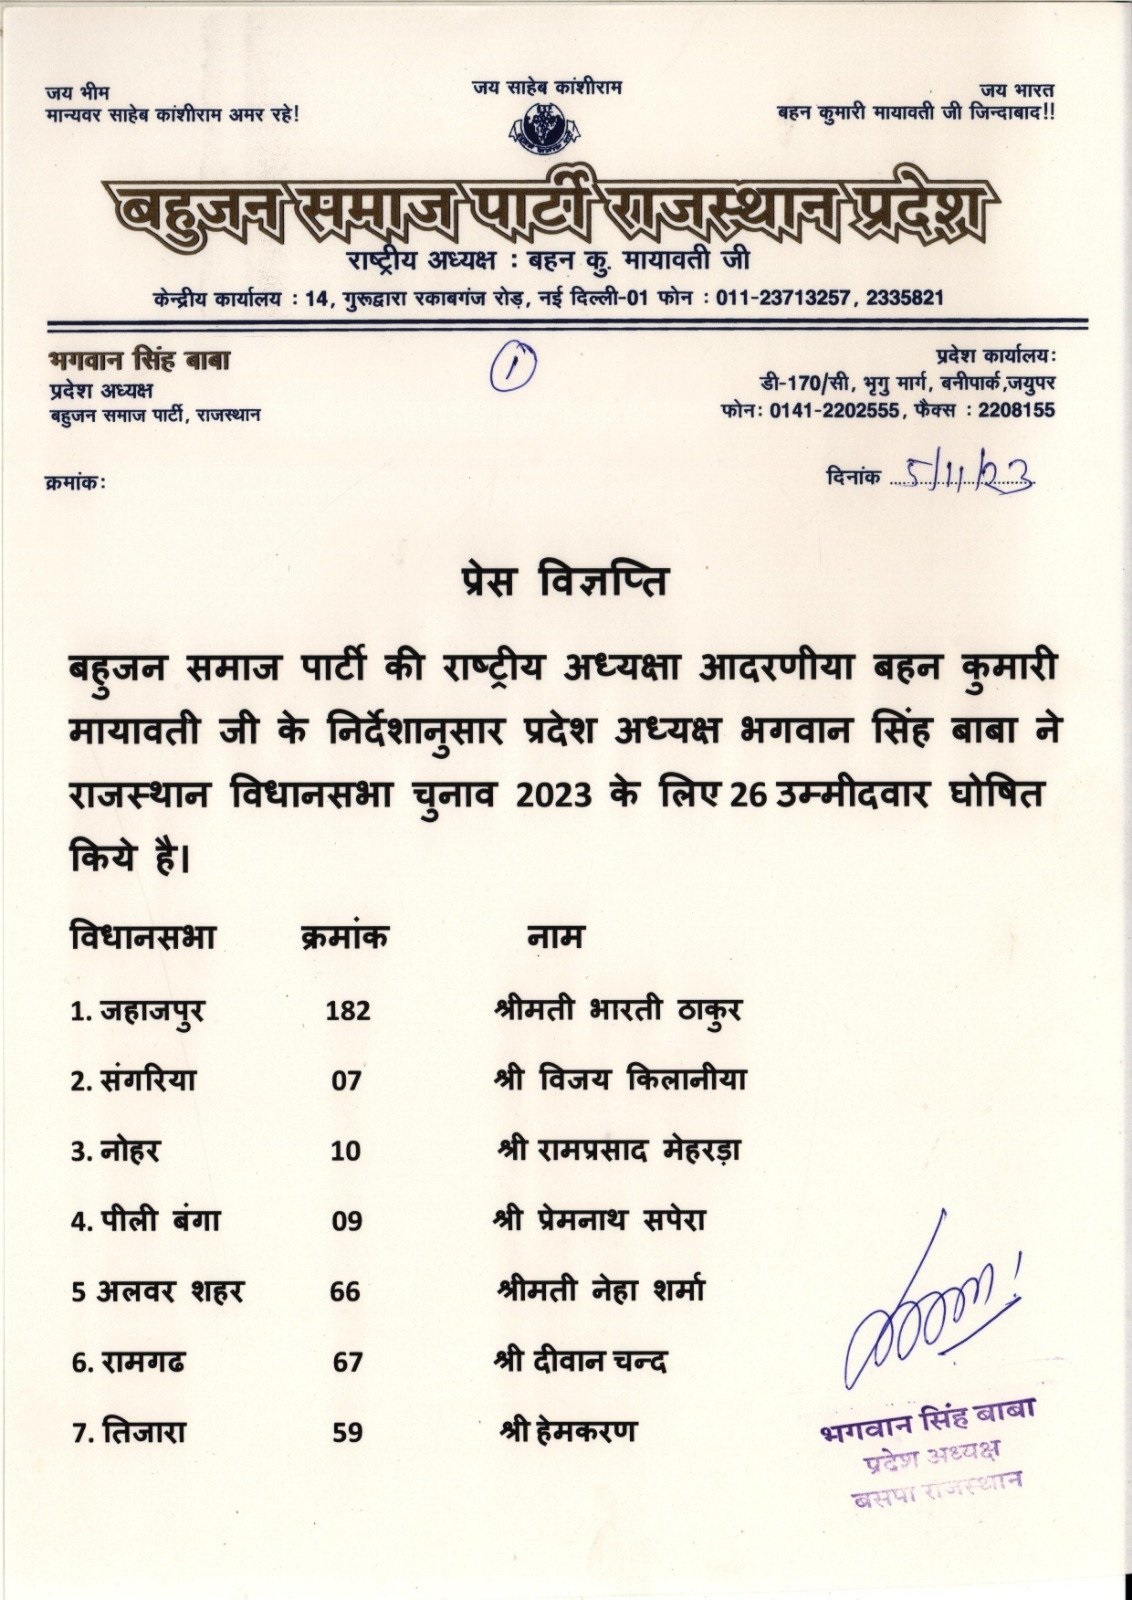 जय भीम
जय साहेब कांशीराम
जय भारत
मान्यवर साहेब कांशीराम अमर रहे!
बहन कुमारी मायावती जी जिन्दाबाद!!
बहुजन समाज पार्टी राजस्थान प्रदेश
राष्ट्रीय अध्यक्ष : बहन कु. मायावती जी
केन्द्रीय कार्यालय : 14, गुरूद्वारा रकाबगंज रोड़, नई दिल्ली-01 फोन : 011-23713257, 2335821
भगवान सिंह बाबा
प्रदेश अध्यक्ष
बहुजन समाज पार्टी, राजस्थान
1
प्रदेश कार्यालय:
डी-170/सी, भृगु मार्ग, बनीपार्क,जयुपर
फोन: 0141-2202555, फैक्स : 2208155
क्रमांक:
दिनांक 5/11/23
प्रेस विज्ञप्ति
बहुजन समाज पार्टी की राष्ट्रीय अध्यक्षा आदरणीया बहन कुमारी
मायावती जी के निर्देशानुसार प्रदेश अध्यक्ष भगवान सिंह बाबा ने
राजस्थान विधानसभा चुनाव 2023 के लिए 26 उम्मीदवार घोषित
किये है।
विधानसभा क्रमांक नाम
1. जहाजपुर 182 श्रीमती भारती ठाकुर
2. संगरिया 07 श्री विजय किलानीया
3. नोहर 10 श्री रामप्रसाद मेहरड़ा
4. पीली बंगा 09 श्री प्रेमनाथ सपेरा
5 अलवर शहर 66 श्रीमती नेहा शर्मा
6. रामगढ 67 श्री दीवान चन्द
7. तिजारा 59 श्री हेमकरण
भगवान सिंह बाबा
प्रदेश अध्यक्ष
बसपा राजस्थान